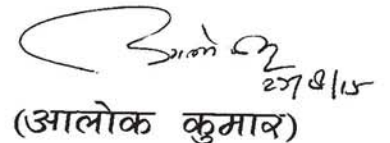 27/8/15
(आलोक कुमार)